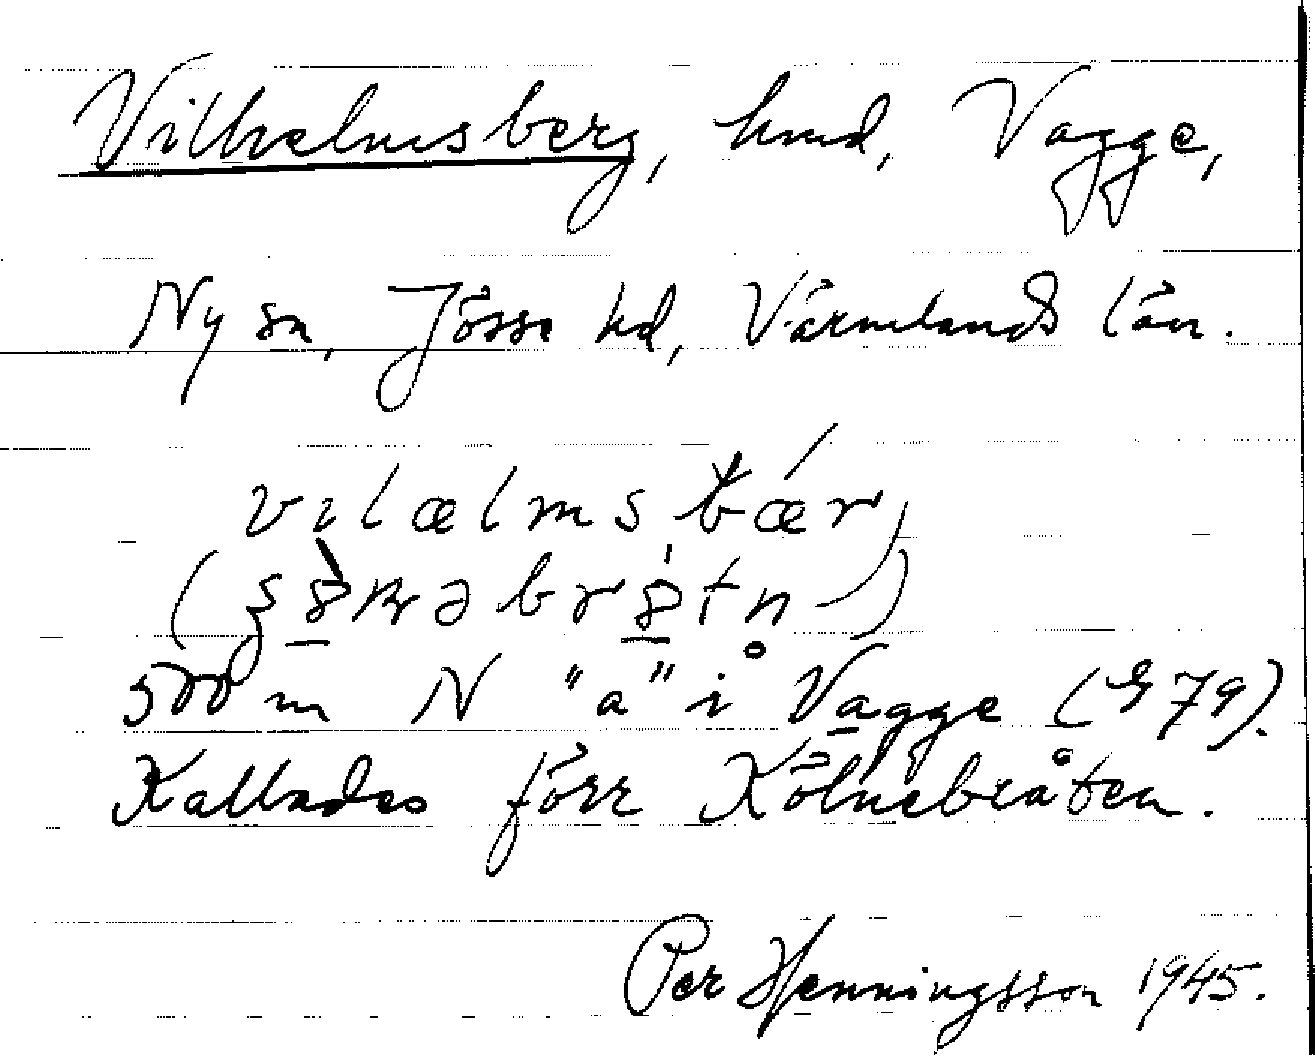 Vilhelmsberg, hmd, Vagge,
Ny sn, Jösse hd, Värmlands län.
vilælmsbǽr
500 m N "a" i Vagge (979).
Kallades förr Kölnebråten.
Per Henningsson 1945.